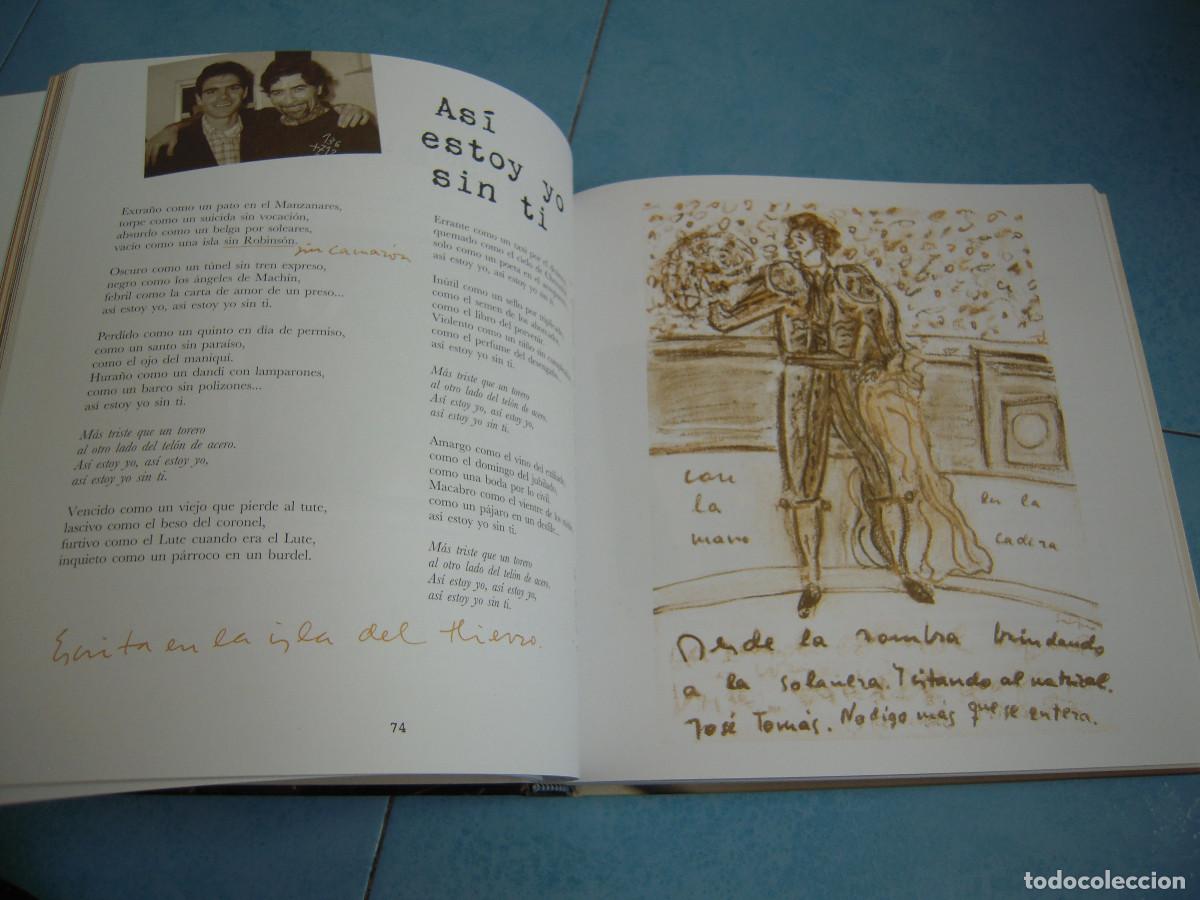 Así
estoy yo
sin ti
Extraño como un pato en el Manzanares,
torpe como un suicida sin vocación,
absurdo como un belga por soleares,
vacío como una isla sin Robinsón,
sin Camarón
Oscuro como un túnel sin tren expreso,
negro como los ángeles de Machín,
febril como la carta de amor de un preso...
así estoy yo, así estoy yo sin ti.
Perdido como un quinto en día de permiso,
como un santo sin paraíso,
como el ojo del maniquí.
Huraño como un dandi con lamparones,
como un barco sin polizones...
así estoy yo sin ti.
Más triste que un torero
al otro lado del telón de acero.
Así estoy yo, así estoy yo,
así estoy yo sin ti.
Vencido como un viejo que pierde al tute,
lascivo como el beso del coronel,
furtivo como el Lute cuando era el Lute,
inquieto como un párroco en un burdel.
Escrita en la isla del Hierro.
74
Errante como un taxi por el
quemado como el cielo de
solo como un poeta en el
así estoy yo, así estoy yo sin ti.
Inútil como un sello por triplicado,
como el semen de los ahorcados,
como el libro del porvenir.
Violento como un niño sin
como el perfume del desengaño...
así estoy yo sin ti.
Más triste que un torero
al otro lado del telón de acero.
Así estoy yo, así estoy yo,
así estoy yo sin ti.
Amargo como el vino del
como el domingo del jubilado,
como una boda por lo civil.
Macabro como el vientre de los
como un pájaro en un desfile...
así estoy yo sin ti.
Más triste que un torero
al otro lado del telón de acero.
Así estoy yo, así estoy yo,
así estoy yo sin ti.
con
la
mano
en la
cadera
Desde la sombra brindando
a la solanera. Y citando al natural.
José Tomás. No digo más que se entera.
todocoleccion